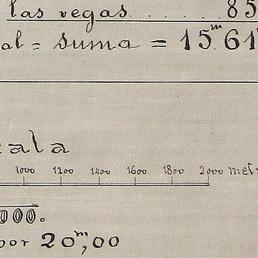 las vegas ..... 85
al = suma = 15m 61
cala
1000 1200 1400 1600 1800 2000 metr
000.
por 20m,00